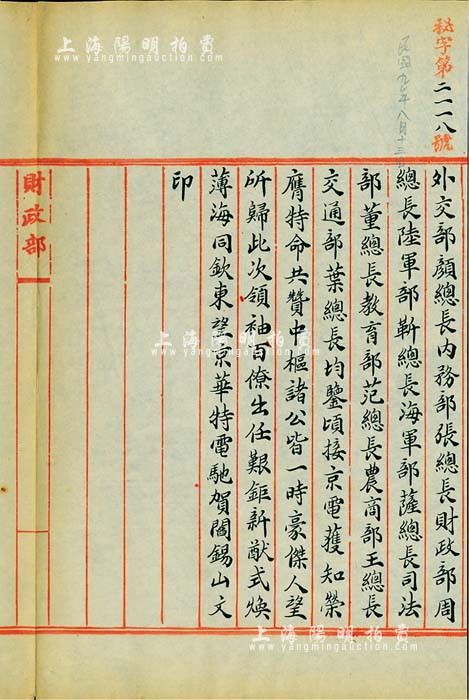 秘字第二一一八號
民國九年八月十三日
外交部顏總長內務部張總長財政部周
總長陸軍部靳總長海軍部薩總長司法
部董總長教育部范總長農商部王總長
交通部葉總長均鑒頃接京電獲知榮
膺特命共贊中樞諸公皆一時豪傑人望
所歸此次領袖百僚出任艱鉅新猷式煥
薄海同欽東望京華特電馳賀閻錫山文
印
財政部
上海陽明拍賣
www.yangmingauction.com
上海陽明拍賣
www.yangmingauction.com
上海陽明拍賣
www.yangmingauction.com